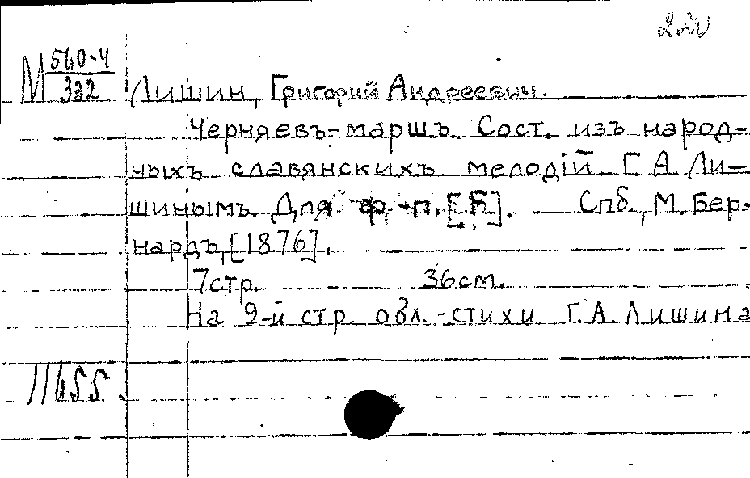 М 560-4
322
Лишин, Григорий Андреевич.
Черняевъ-маршъ. Сост. изъ народ-
ныхъ славянскихъ мелодiй Г. А. Ли-
шинымъ. Для ф.-п. [Б]. Спб., М. Бер-
нардъ, [1876].
7стр. 36см.
На 9-й стр обл.-стихи Г.А. Лишина
11655